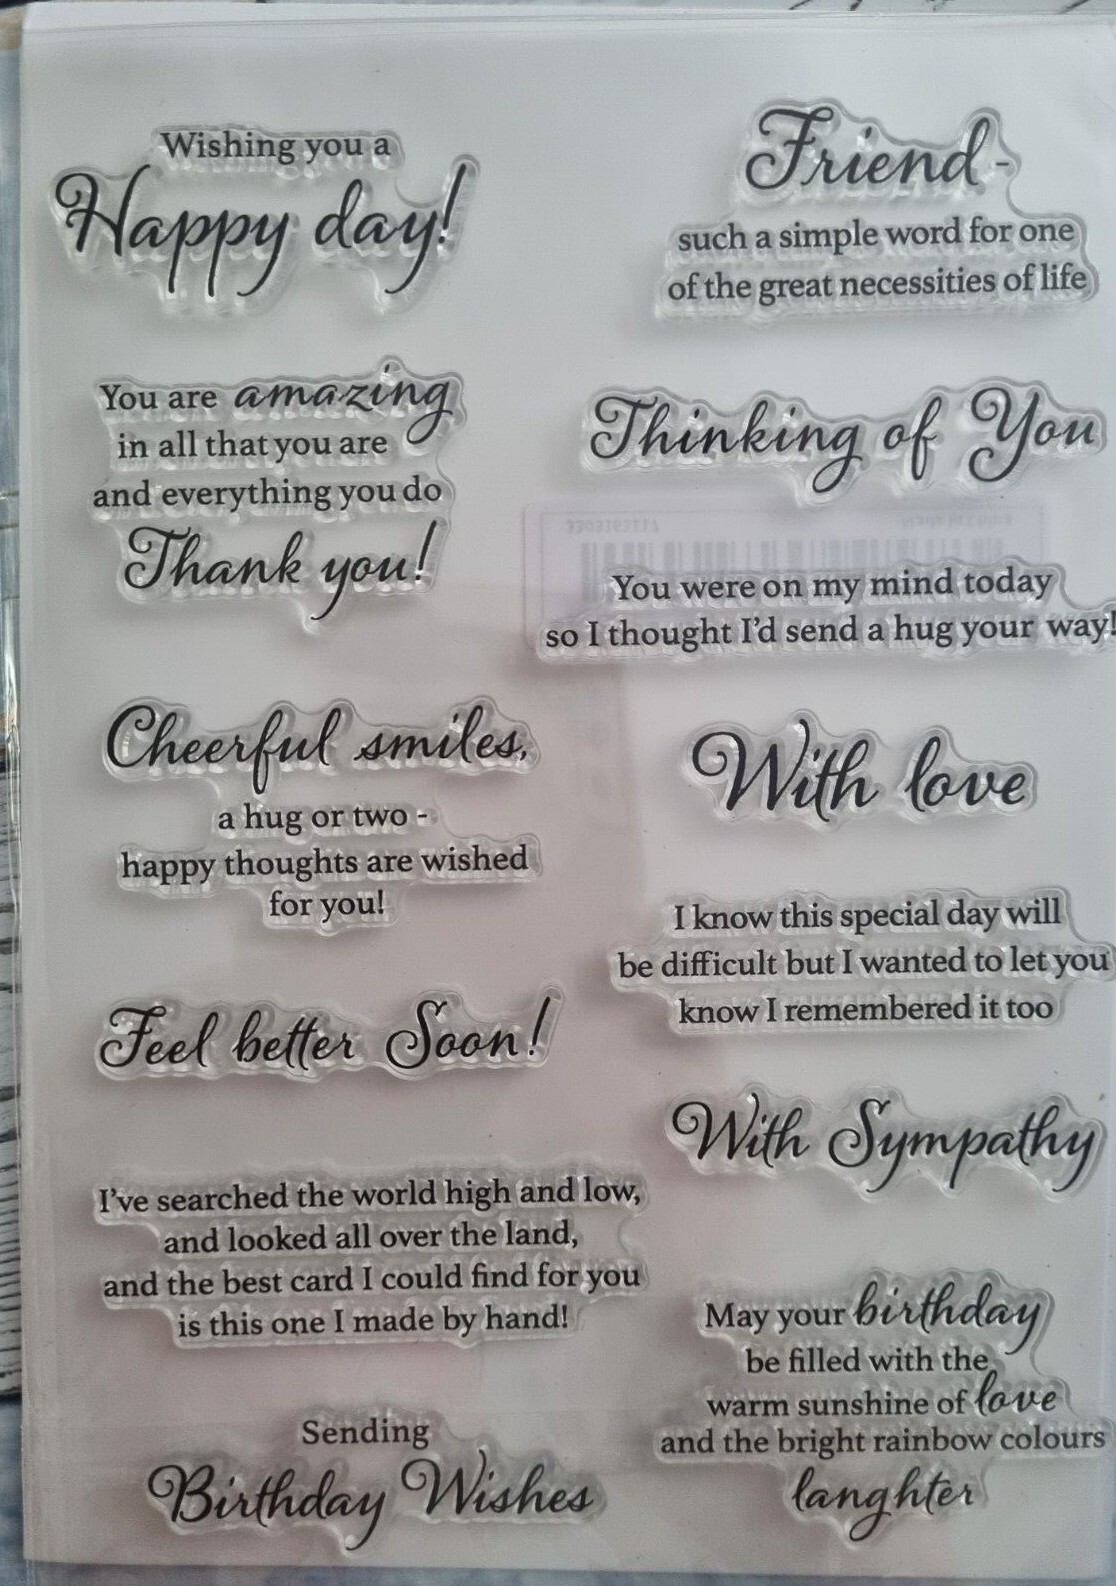 Wishing you a
Happy day!
You are amazing
in all that you are
and everything you do
Thank you!
Cheerful smiles,
a hug or two -
happy thoughts are wished
for you!
Feel better Soon!
I've searched the world high and low,
and looked all over the land,
and the best card I could find for you
is this one I made by hand!
Sending
Birthday Wishes
Friend -
such a simple word for one
of the great necessities of life
Thinking of You
You were on my mind today
so I thought I'd send a hug your way!
With love
I know this special day will
be difficult but I wanted to let you
know I remembered it too
With Sympathy
May your birthday
be filled with the
warm sunshine of love
and the bright rainbow colours
langhter